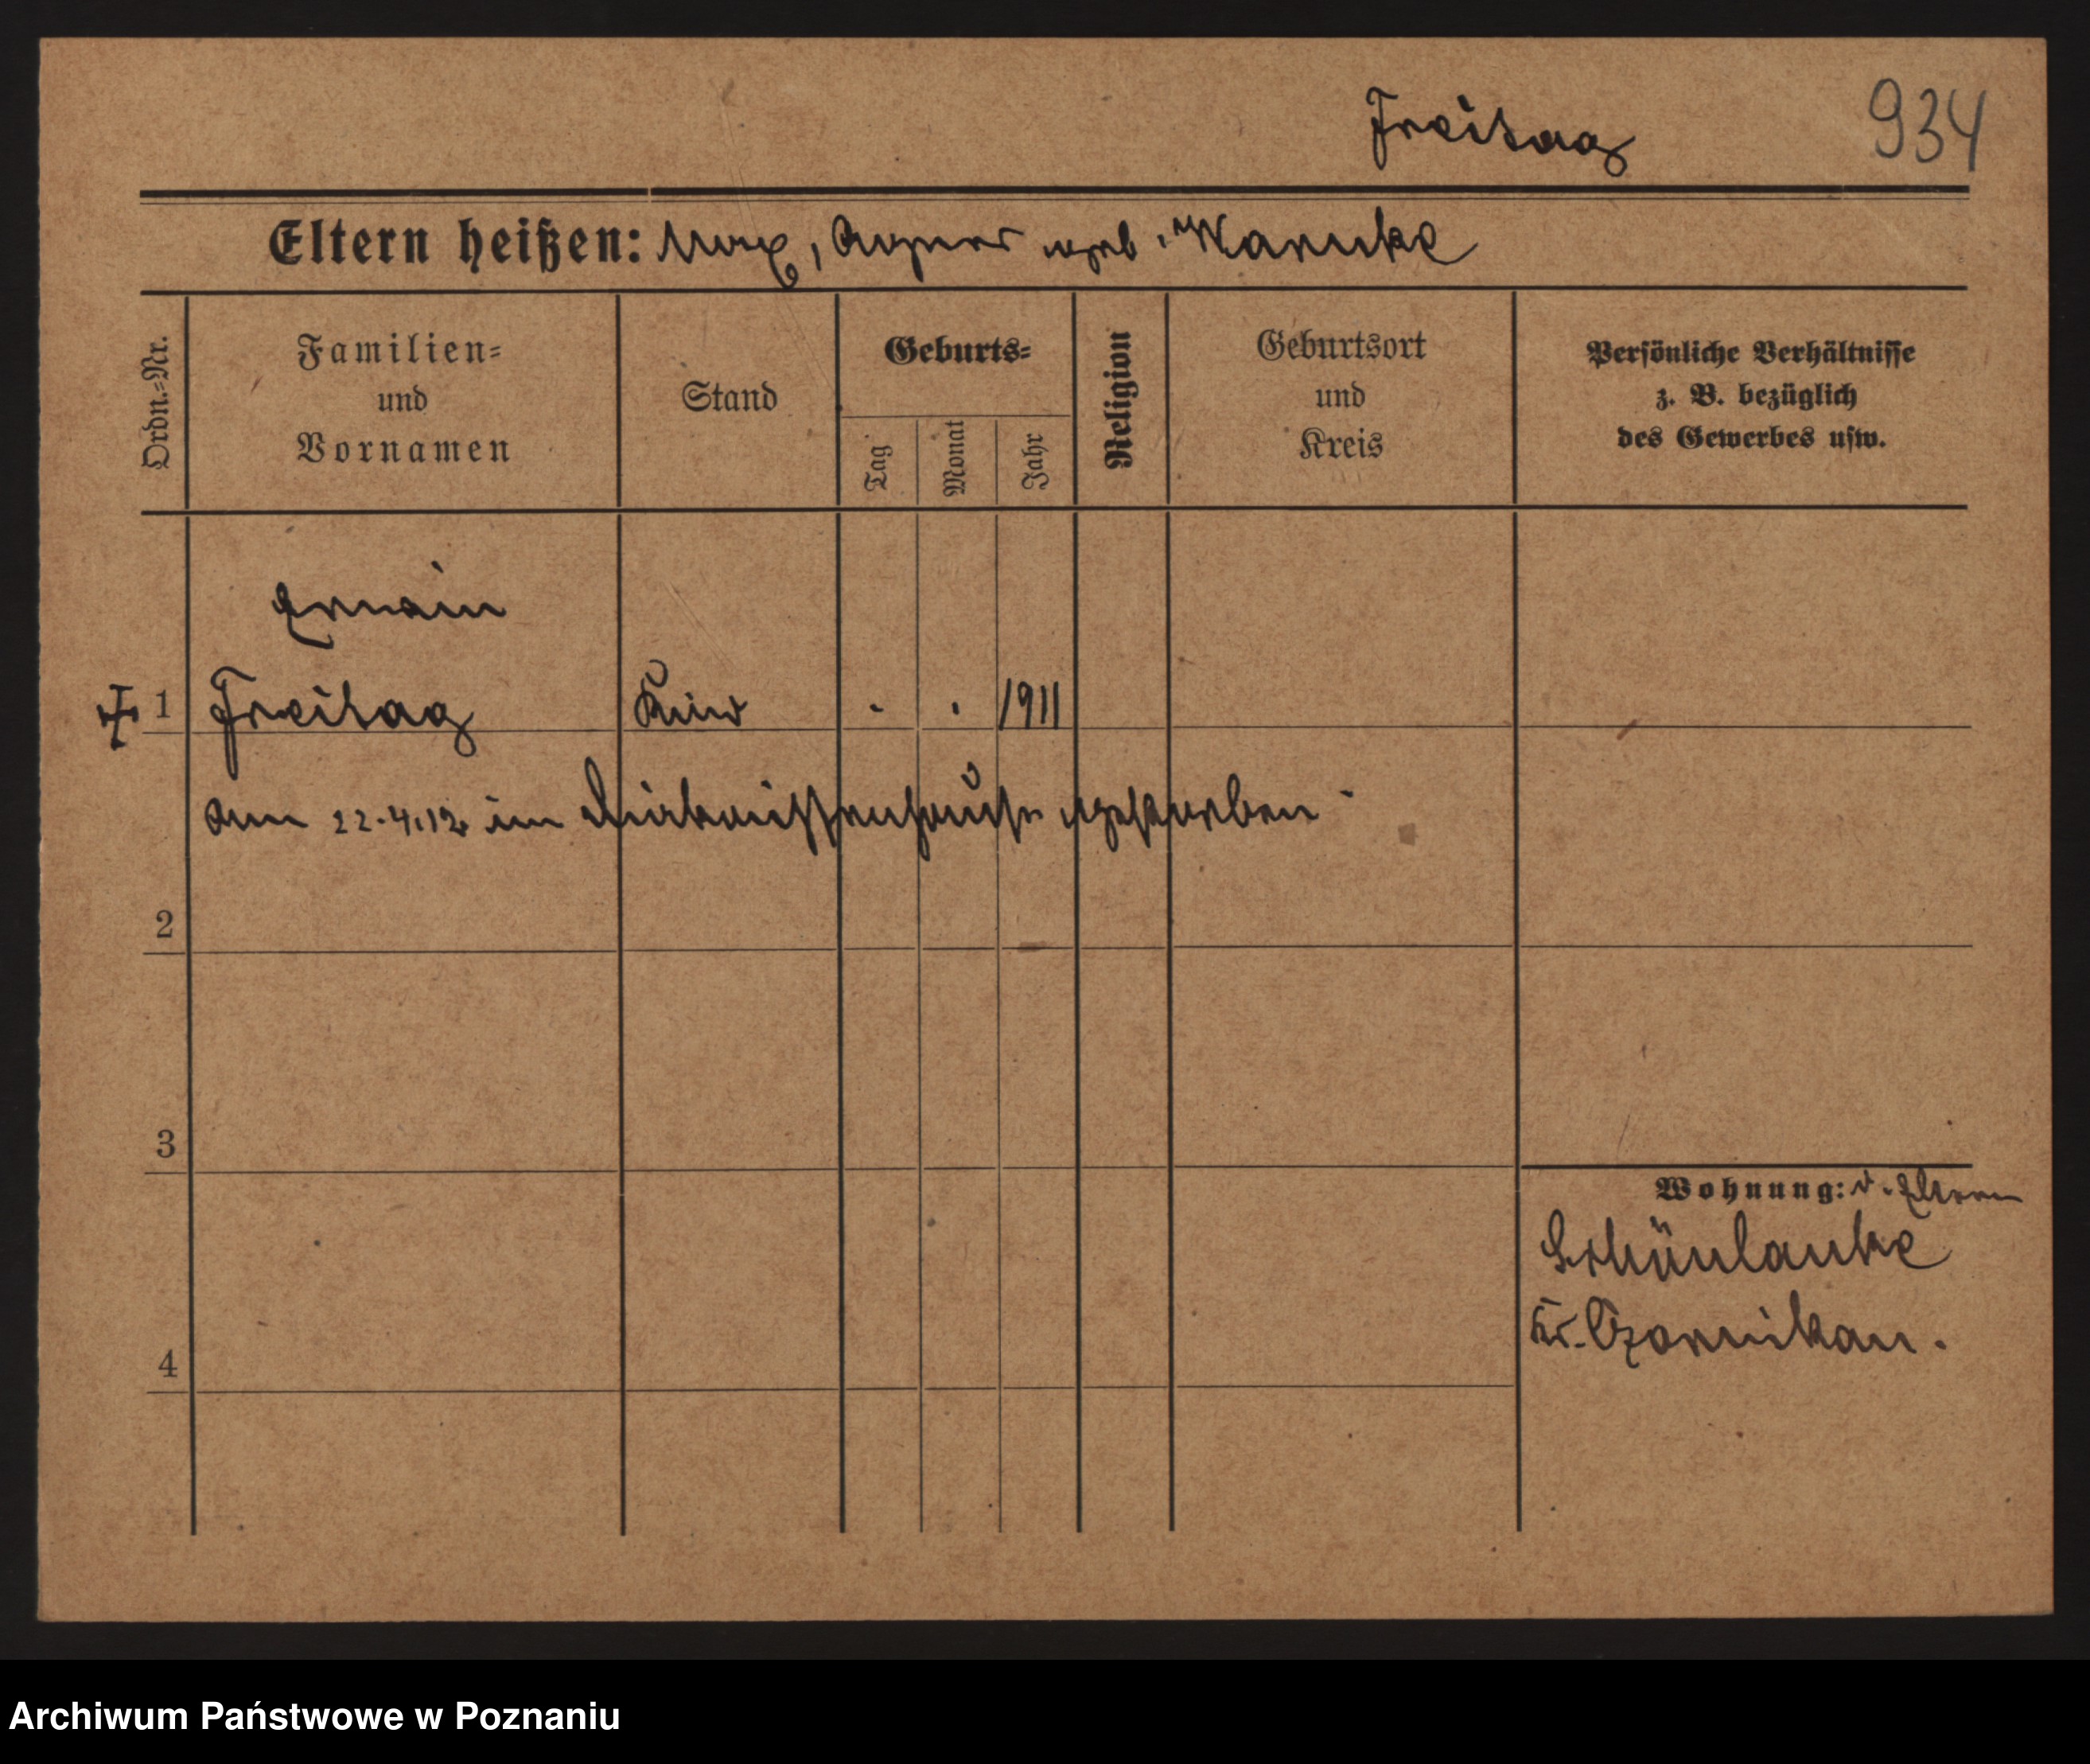 Freitag 934
Eltern heißen: Max, Agnes geb. Warnke
Ordn.-Nr.
Familien-
und
Vornamen
Stand
Geburts-
Tag
Monat
Jahr
Religion
Geburtsort
und
Kreis
Persönliche Verhältnisse
z. B. bezüglich
des Gewerbes usw.
Erwin
1 Freitag Kind . . 1911
am 22.4.12 im Diakonissenhause gestorben
2
3
Wohnung: d. Eltern
Schönlanke
Kr. Czarnikau.
4
Archiwum Państwowe w Poznaniu